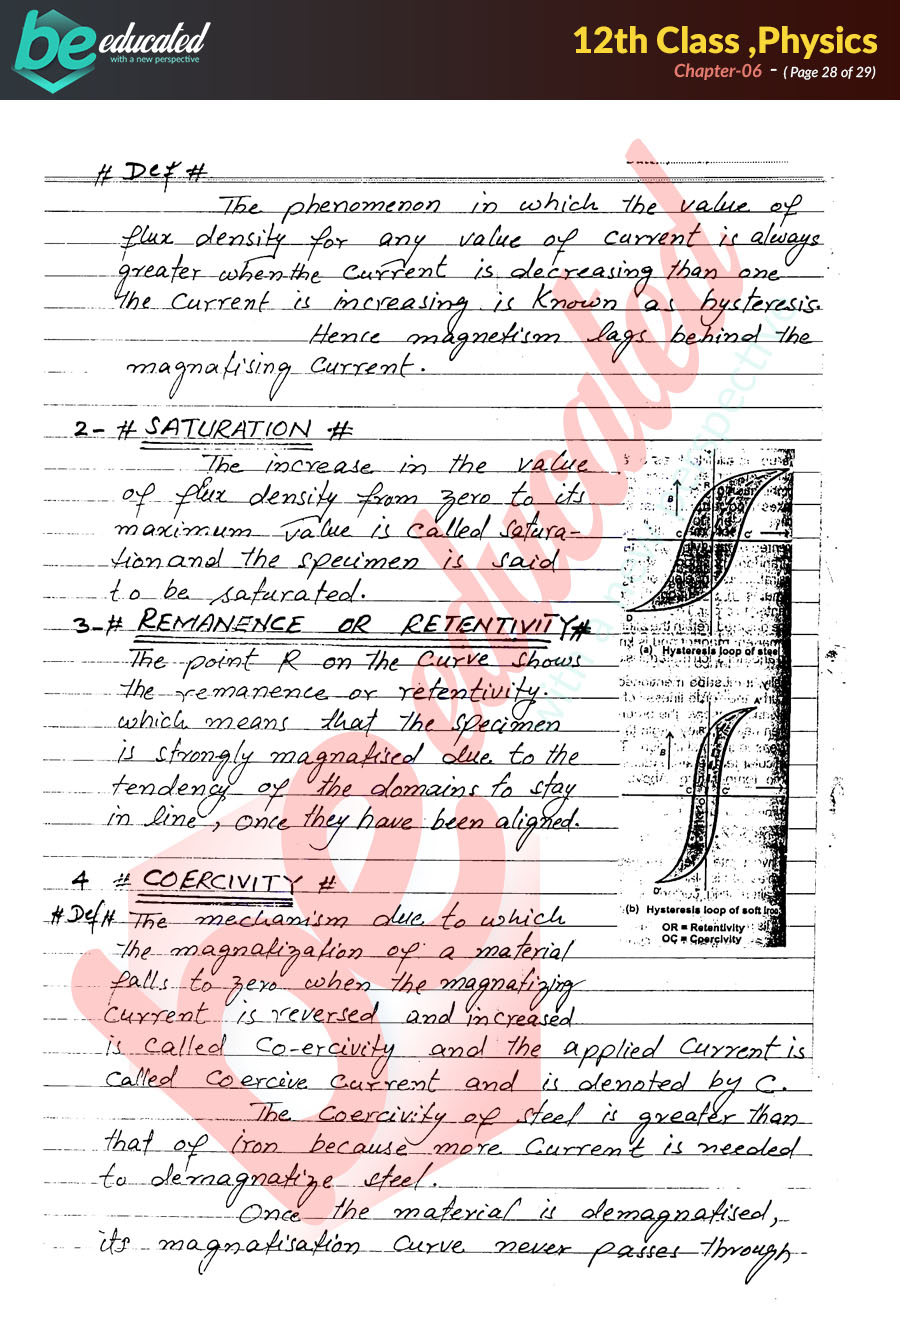 be educated
with a new perspective
12th Class ,Physics
Chapter-06 - ( Page 28 of 29)
# Def #
The phenomenon in which the value of
flux density for any value of current is always
greater when the current is decreasing than one
the current is increasing is known as hysteresis.
Hence magnetism lags behind the
magnatising current.
2- # SATURATION #
The increase in the value
of flux density from zero to its
maximum value is called satura-
tion and the specimen is said
to be saturated.
3-# REMANENCE OR RETENTIVITY#
The point R on the curve shows
the remanence or retentivity.
which means that the specimen
is strongly magnatised due to the
tendency of the domains to stay
in line, once they have been aligned.
(a) Hysteresis loop of steel
(b) Hysteresis loop of soft iron
OR = Retentivity
OC = Coercivity
4 # COERCIVITY #
# Def # The mechanism due to which
the magnatization of a material
falls to zero when the magnatizing
current is reversed and increased
is called Co-ercivity and the applied current is
called Coercive current and is denoted by C.
The coercivity of steel is greater than
that of iron because more current is needed
to demagnatize steel.
Once the material is demagnatised,
its magnatisation curve never passes through